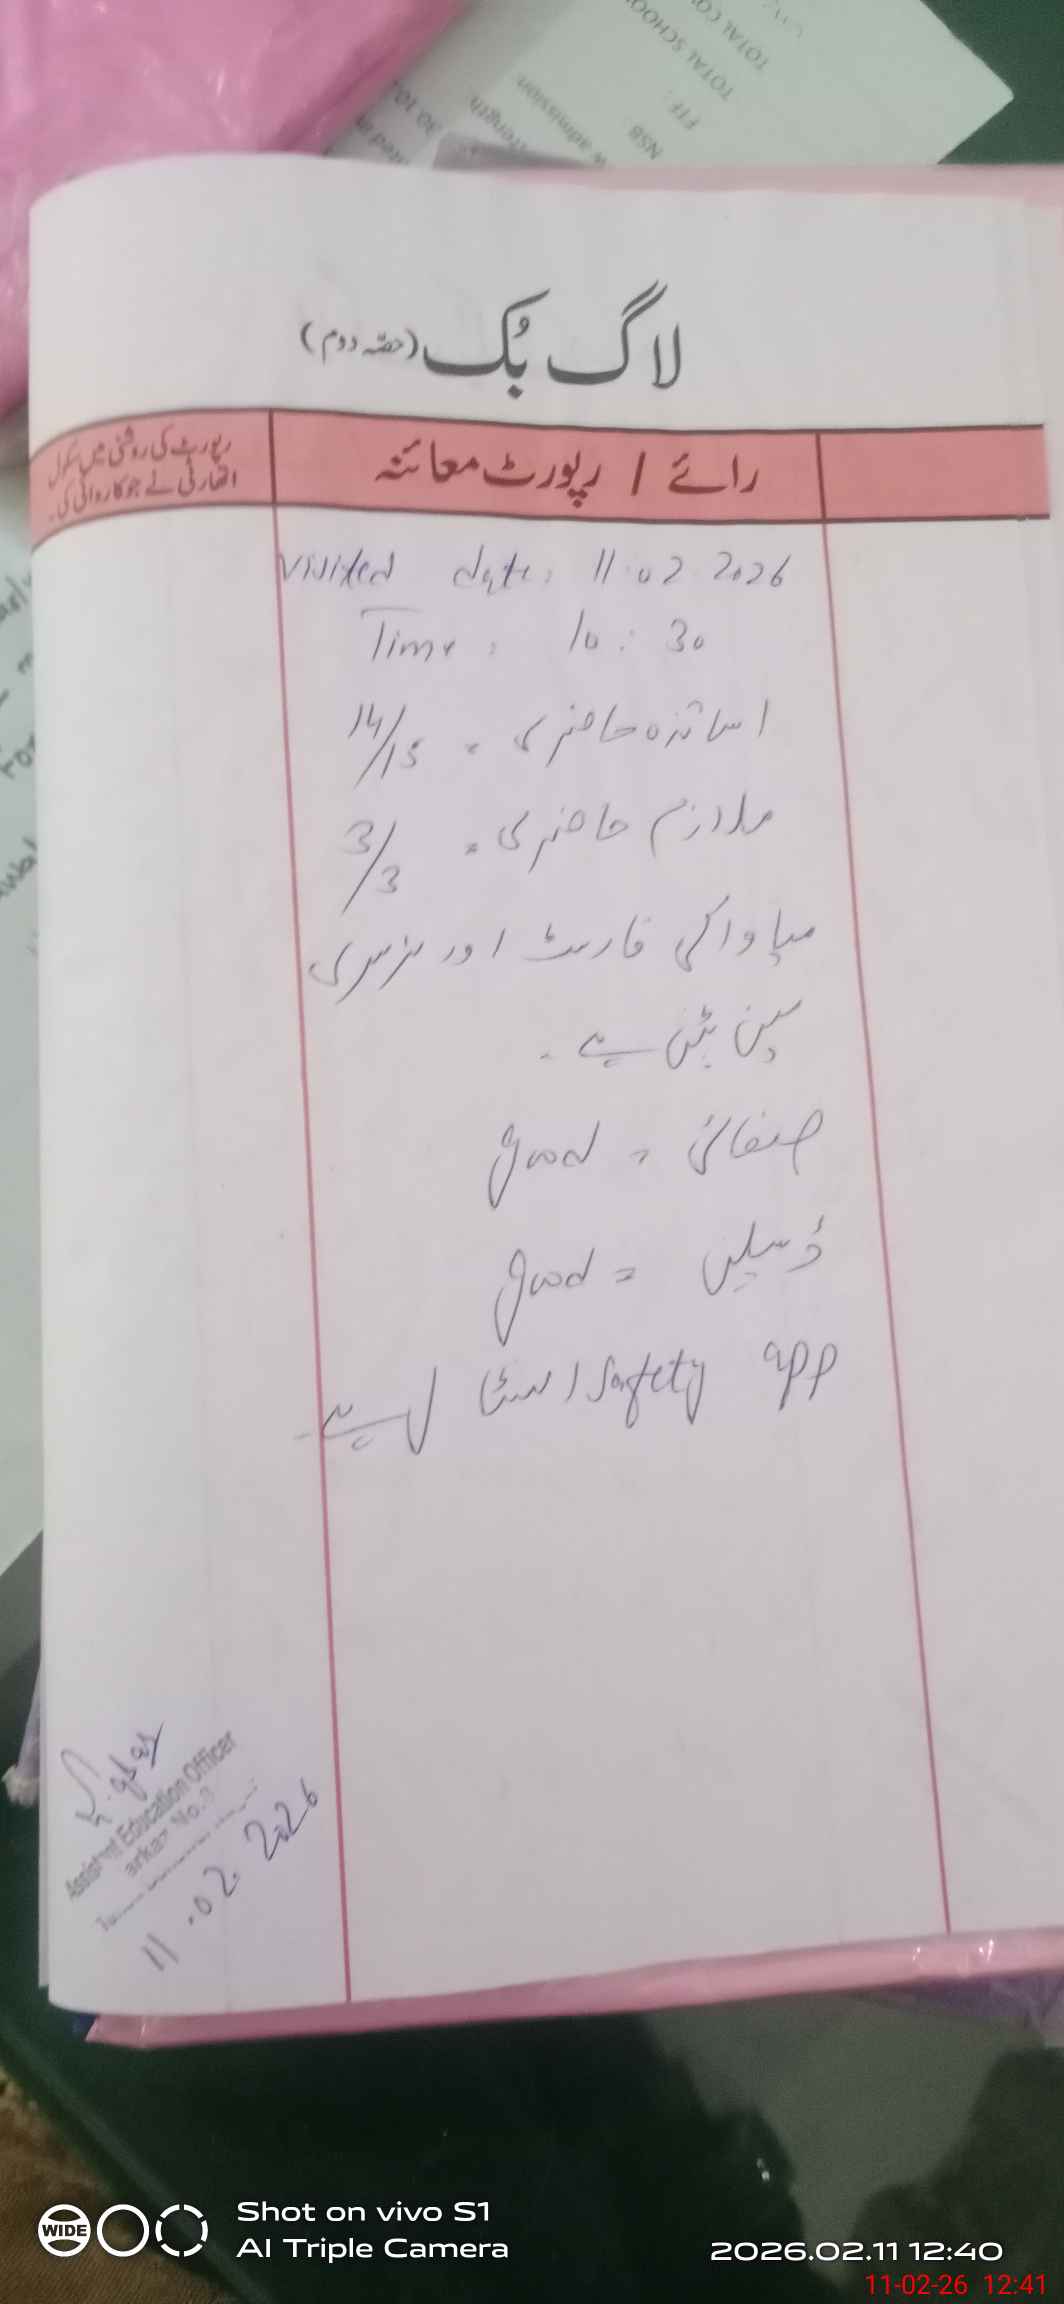 TOTAL CO
TOTAL SCHOO
FTF:
NSB
w admission:
rength:
30.10.
لاگ بُک (حصّہ دوم)
رائے / رپورٹ معائنہ
رپورٹ کی روشنی میں سکول
اتھارٹی نے جو کاروائی کی۔
Visited date: 11.02.2026
Time: 10:30
اساتذہ حاضری = 14/15
ملازم حاضری = 3/3
کی فارسٹ اور نرسری
ہے۔
صفائی = good
ڈسپلن = good
Safety app انسٹال ہے۔
Assistant Education Officer
arkaz No.
11.02.2026
WIDE
Shot on vivo S1
AI Triple Camera
2026.02.11 12:40
11-02-26 12:41